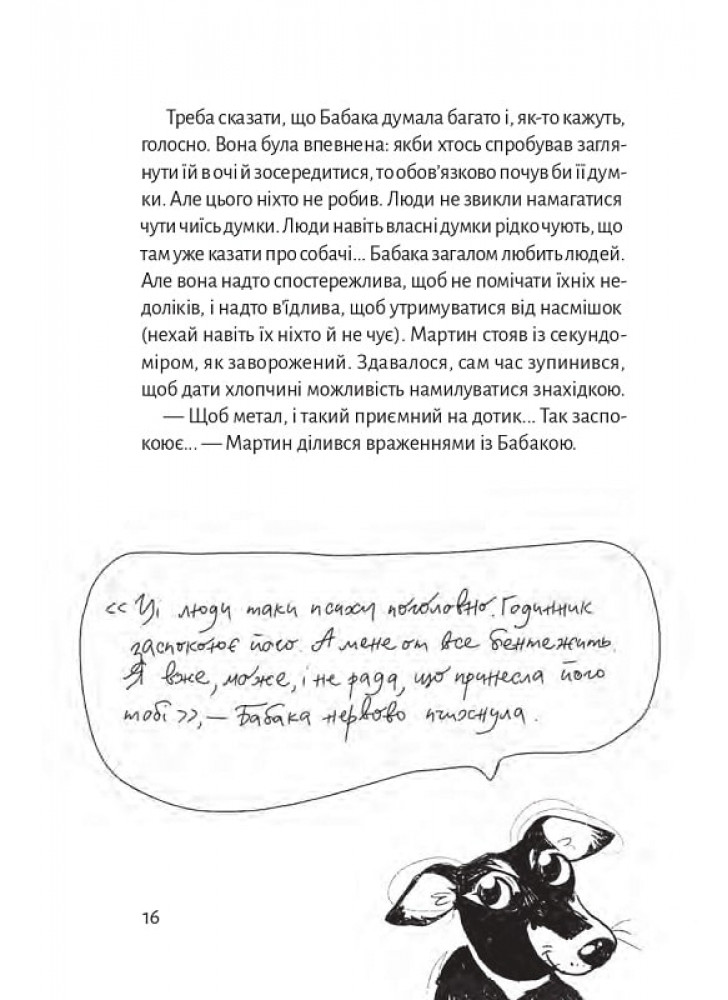 Треба сказати, що Бабака думала багато і, як-то кажуть,
голосно. Вона була впевнена: якби хтось спробував загля-
нути їй в очі й зосередитися, то обов'язково почув би її дум-
ки. Але цього ніхто не робив. Люди не звикли намагатися
чути чиїсь думки. Люди навіть власні думки рідко чують, що
там уже казати про собачі... Бабака загалом любить людей.
Але вона надто спостережлива, щоб не помічати їхніх не-
доліків, і надто в'їдлива, щоб утримуватися від насмішок
(нехай навіть їх ніхто й не чує). Мартин стояв із секундо-
міром, як заворожений. Здавалося, сам час зупинився,
щоб дати хлопчині можливість намилуватися знахідкою.
— Щоб метал, і такий приємний на дотик... Так заспо-
коює... — Мартин ділився враженнями із Бабакою.
«Ці люди таки психи поголовно. Годинник
заспокоює його. А мене от все бентежить.
Я вже, може, і не рада, що принесла його
тобі», — Бабака нервово пчихнула.
16